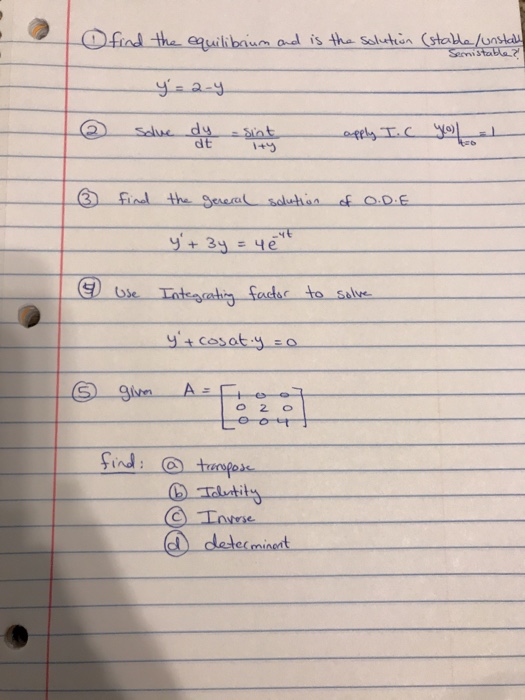 ① find the equilibrium and is the solution (stable/unstabl
Semistable?
y' = 2-y
② Solve dy/dt = sint/1+y apply I.C y(0)|t=0 = 1
③ Find the general solution of O.D.E
y' + 3y = 4e^-4t
④ Use Integrating factor to solve
y' + cosat·y = 0
⑤ given A = [1 0 0
0 2 0
0 0 4]
find: ⓐ transpose
ⓑ Identity
ⓒ Inverse
ⓓ determinent